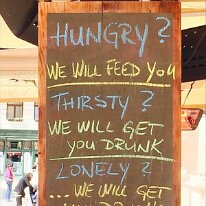 HUNGRY?
WE WILL FEED YOU
THIRSTY?
WE WILL GET
YOU DRUNK
LONELY?
... WE WILL GET
YOU DRUNK